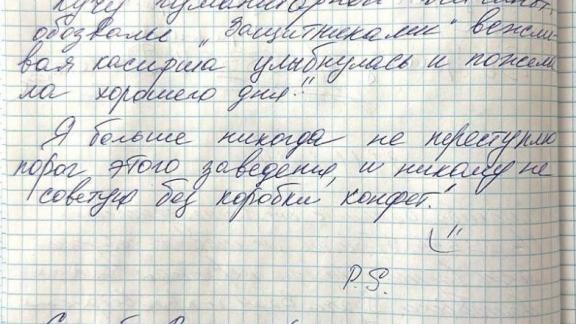 кучу гуманитарной
обозвали „Защитниками" вежли-
вая кассирша улыбнулась и пожела-
ла хорошего дня!"
Я больше никогда не переступлю
порог этого заведения, и никому не
советую без коробки конфет!
P.S.